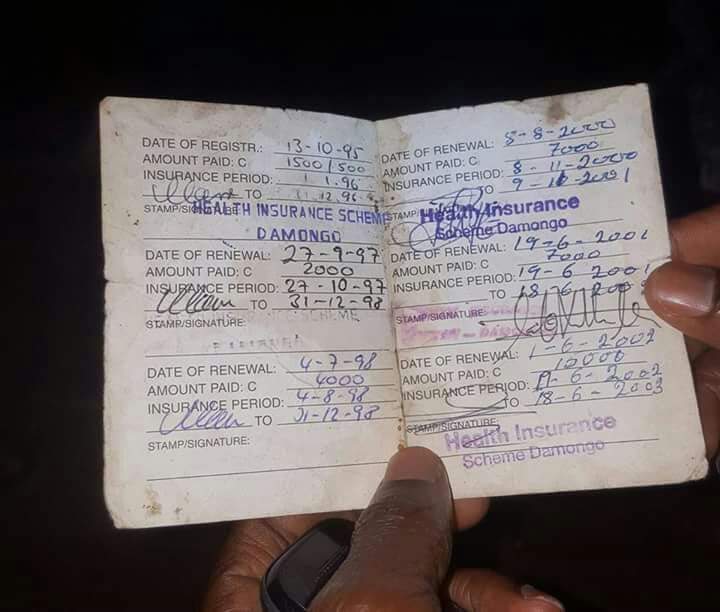 DATE OF REGISTR.: 13-10-95
AMOUNT PAID: C 1500/500
INSURANCE PERIOD: 1.1.96
TO 31.12.96
STAMP/SIGNATURE
HEALTH INSURANCE SCHEME
DAMONGO
DATE OF RENEWAL: 27-9-97
AMOUNT PAID: C 2000
INSURANCE PERIOD: 27-10-97
TO 31-12-98
STAMP/SIGNATURE:
INSURANCE SCHEME
DATE OF RENEWAL: 4-7-98
AMOUNT PAID: C 4000
INSURANCE PERIOD: 4-8-98
TO 31-12-98
STAMP/SIGNATURE:
DATE OF RENEWAL: 8-8-2000
AMOUNT PAID: C 7000
INSURANCE PERIOD: 8-11-2000
TO 9-11-2001
STAMP/
Health Insurance
Scheme Damongo
DATE OF RENEWAL: 19-6-2001
AMOUNT PAID: C 7000
INSURANCE PERIOD: 19-6-2001
TO 18-6-
STAMP/SIGNATURE:
DATE OF RENEWAL: 1-6-2002
AMOUNT PAID: C 10000
INSURANCE PERIOD: 19-6-2002
TO 18-6-2003
STAMP/SIGNATURE:
Health Insurance
Scheme Damongo